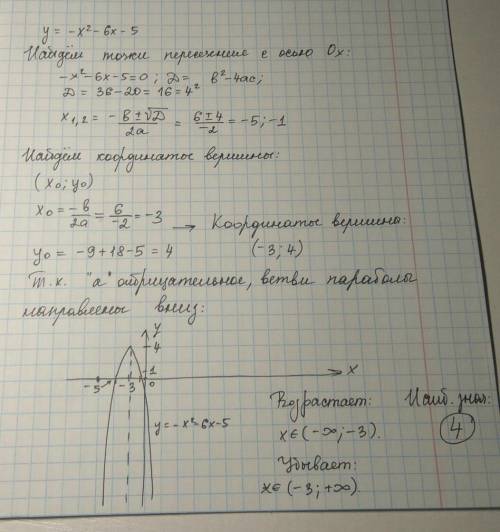 y = -x² - 6x - 5
Найдём точки пересечение с осью Ox:
-x² - 6x - 5 = 0 ; D = b² - 4ac;
D = 36 - 20 = 16 = 4²
x₁,₂ = -b ± √D / 2a = 6 ± 4 / -2 = -5; -1
Найдём координаты вершины:
(x₀; y₀)
x₀ = -b / 2a = 6 / -2 = -3 → Координаты вершины:
y₀ = -9 + 18 - 5 = 4 (-3; 4)
Т.к. "a" отрицательное, ветви параболы
направлены вниз:
y
4
1
-5 -3 0 x
y = -x² - 6x - 5
Возрастает:
x ∈ (-∞; -3).
Убывает:
x ∈ (-3; +∞).
Наиб. знач:
4